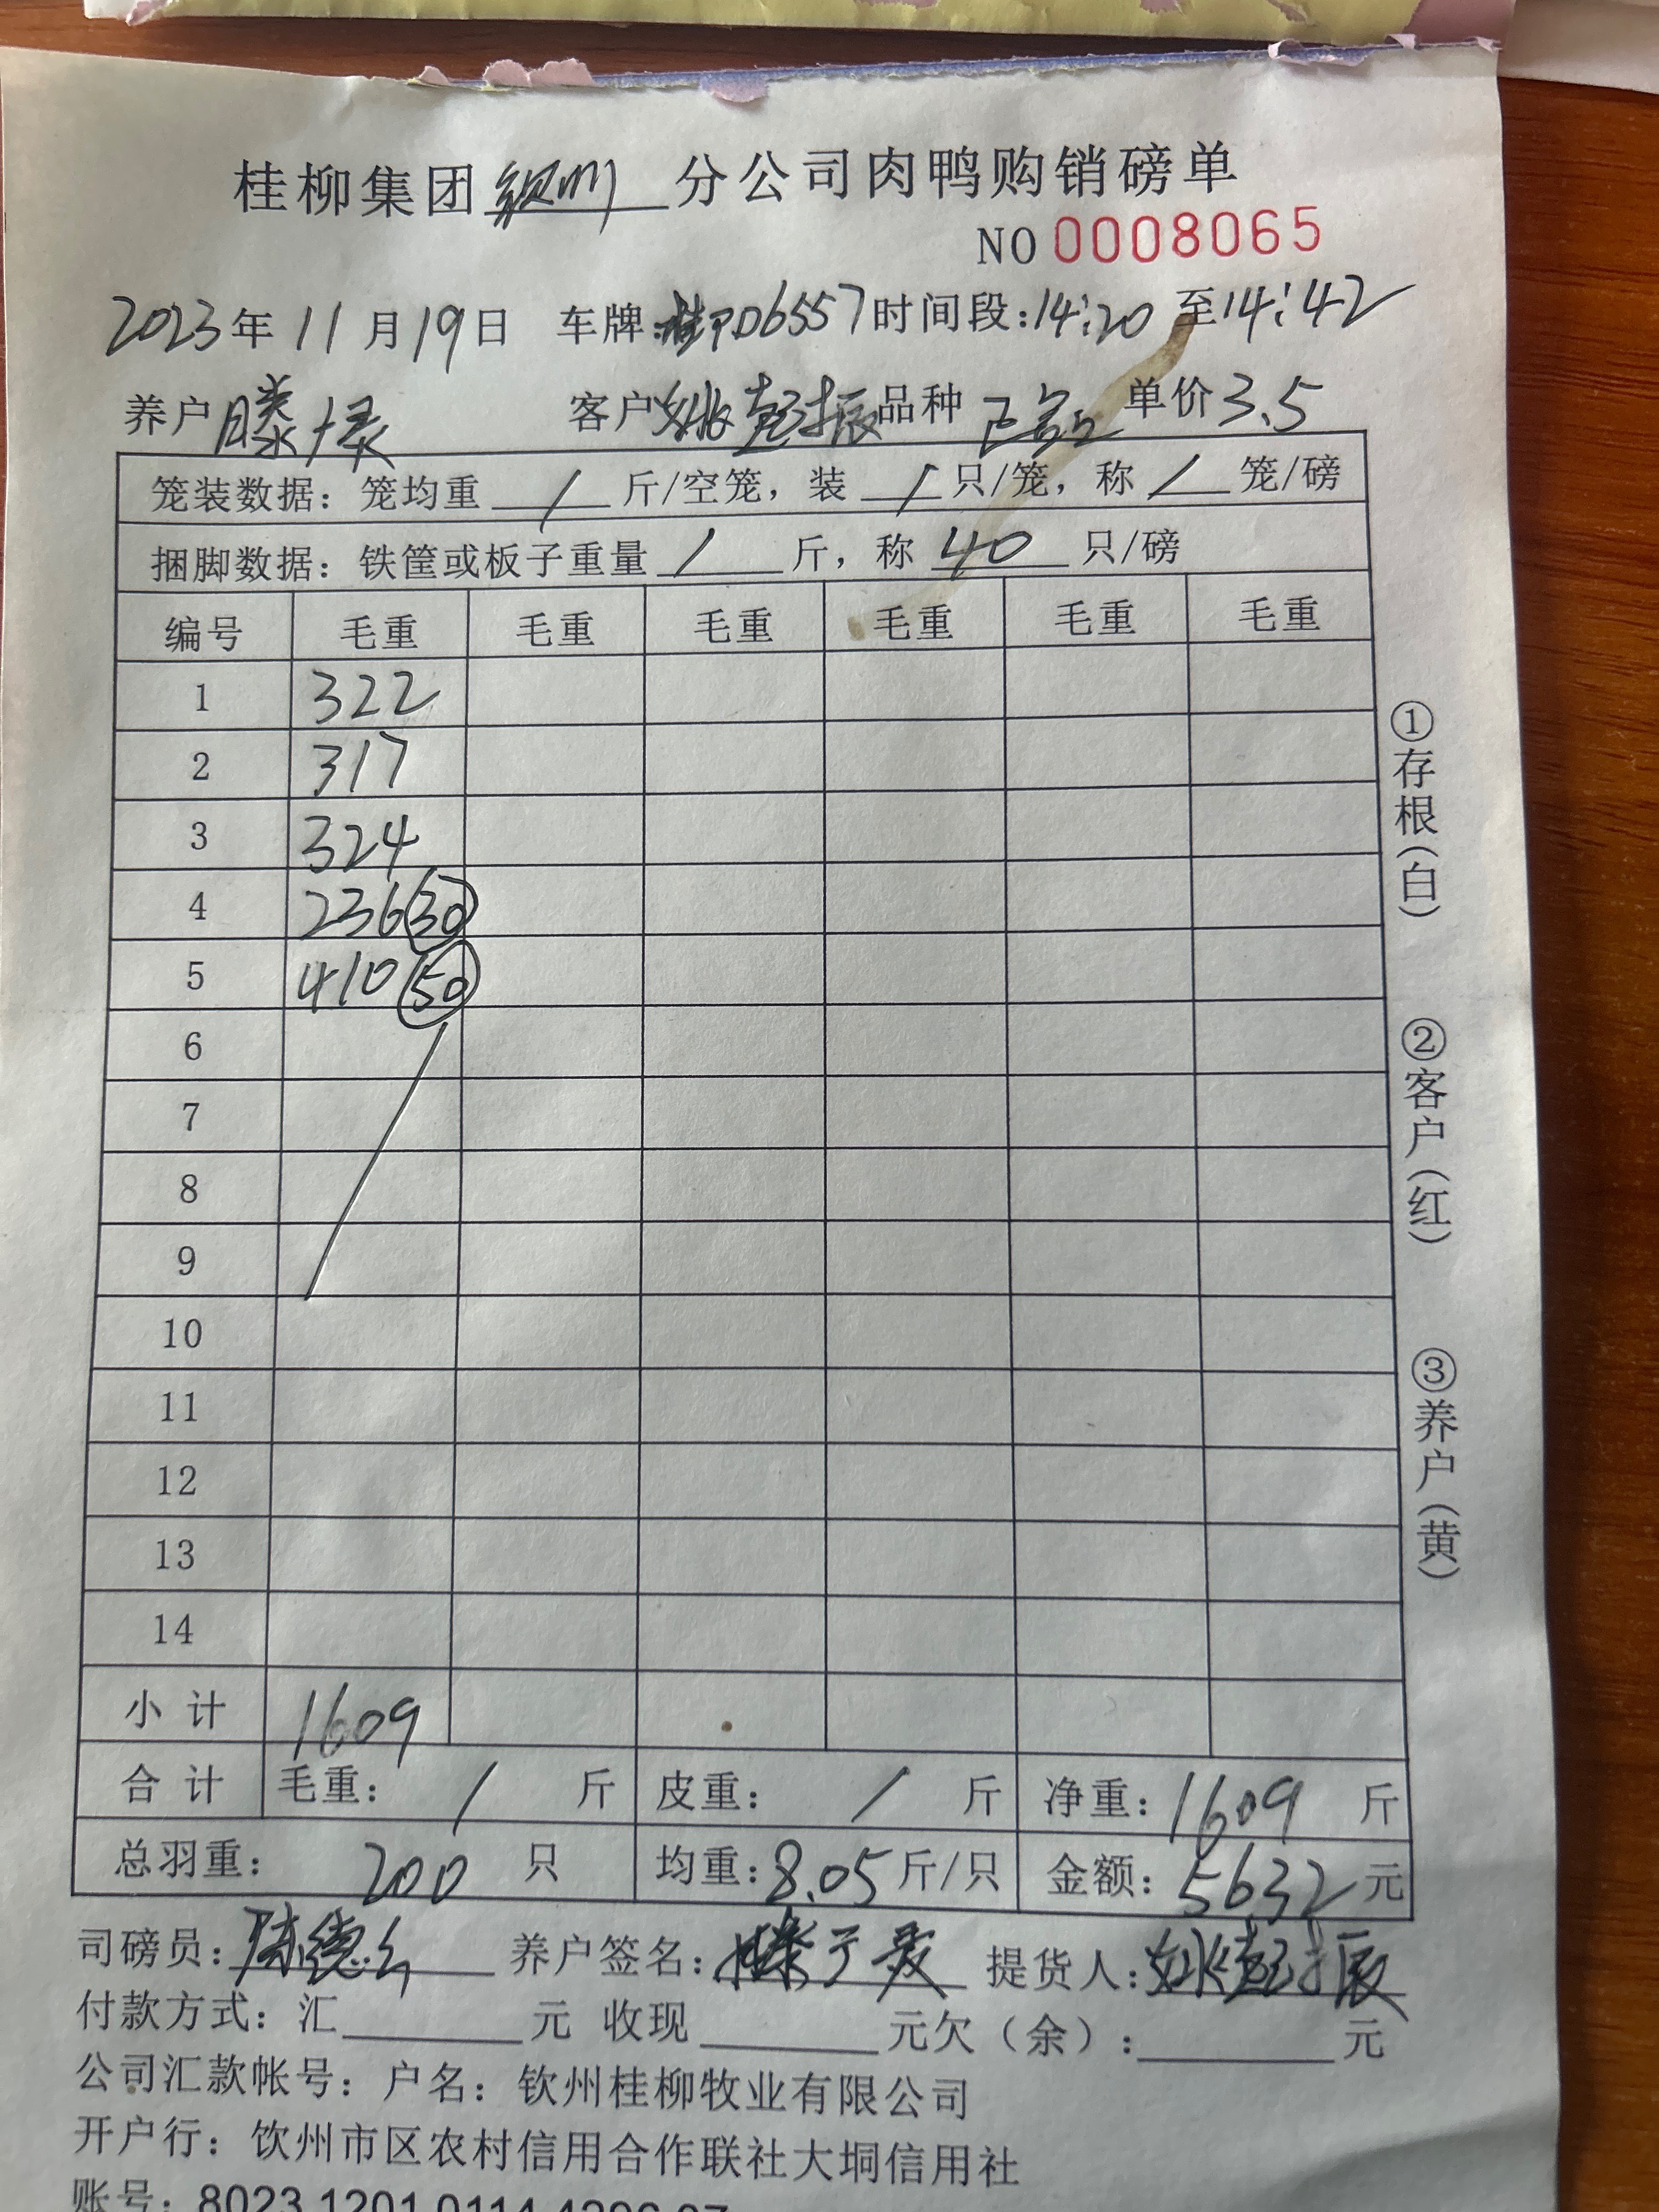 桂柳集团 钦州 分公司肉鸭购销磅单
NO 0008065
2023年 11 月 19 日 车牌:桂PD6557 时间段:14:20 至 14:42
养户 滕 客户 姚 振 品种 单价 3.5
笼装数据: 笼均重 / 斤/空笼, 装 / 只/笼, 称 / 笼/磅
捆脚数据: 铁筐或板子重量 / 斤, 称 40 只/磅
编号 毛重 毛重 毛重 毛重 毛重 毛重
1 322
2 317
3 324
4 236 30
5 410 50
6
7
8
9
10
11
12
13
14
小 计 1609
合 计 毛重: / 斤 皮重: / 斤 净重: 1609 斤
总羽重: 200 只 均重: 8.05 斤/只 金额: 5632 元
司磅员: 陈德 养户签名: 滕 提货人: 姚 振
付款方式: 汇 元 收现 元欠（余）: 元
公司汇款帐号: 户名: 钦州桂柳牧业有限公司
开户行: 钦州市区农村信用合作联社大垌信用社
账号: 8023 1201 0114
①存根（白）
②客户（红）
③养户（黄）